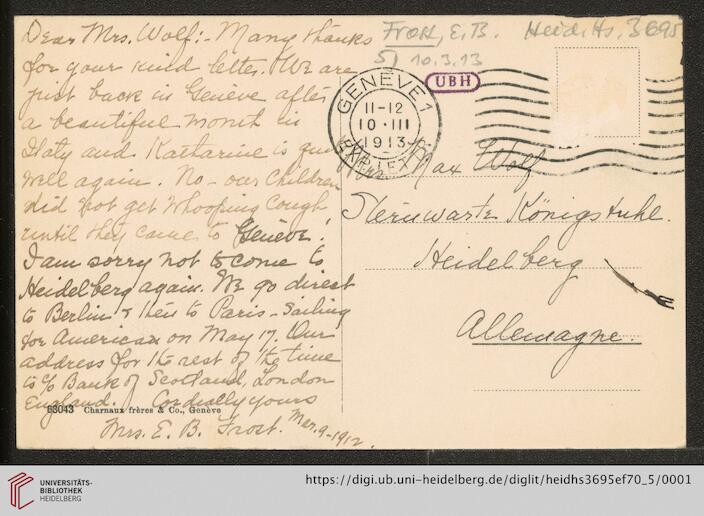 Dear Mrs. Wolf:- Many thanks
for your kind letter. We are
just back in Genève after
a beautiful month in
Italy and Katharine is quite
well again. No - our children
did not get Whooping Cough
until they came to Genève!
I am sorry not to come to
Heidelberg again. We go direct
to Berlin & then to Paris - Sailing
for American on May 17. Our
address for the rest of the time
is c/o Bank of Scotland, London
England. Cordially yours
Mrs. E. B. Frost. Mar. 9 - 1912.
63043 Charnaux frères & Co., Genève
Frost, E. B. Heid. Hs. 3695
5) 10.3.13
UBH
GENÈVE 1
11-12
10·III
1913
EXP. LET.
Mrs. Max Wolf
Sternwarte Königstuhl.
Heidelberg
Allemagne.
UNIVERSITÄTS-
BIBLIOTHEK
HEIDELBERG
https://digi.ub.uni-heidelberg.de/diglit/heidhs3695ef70_5/0001